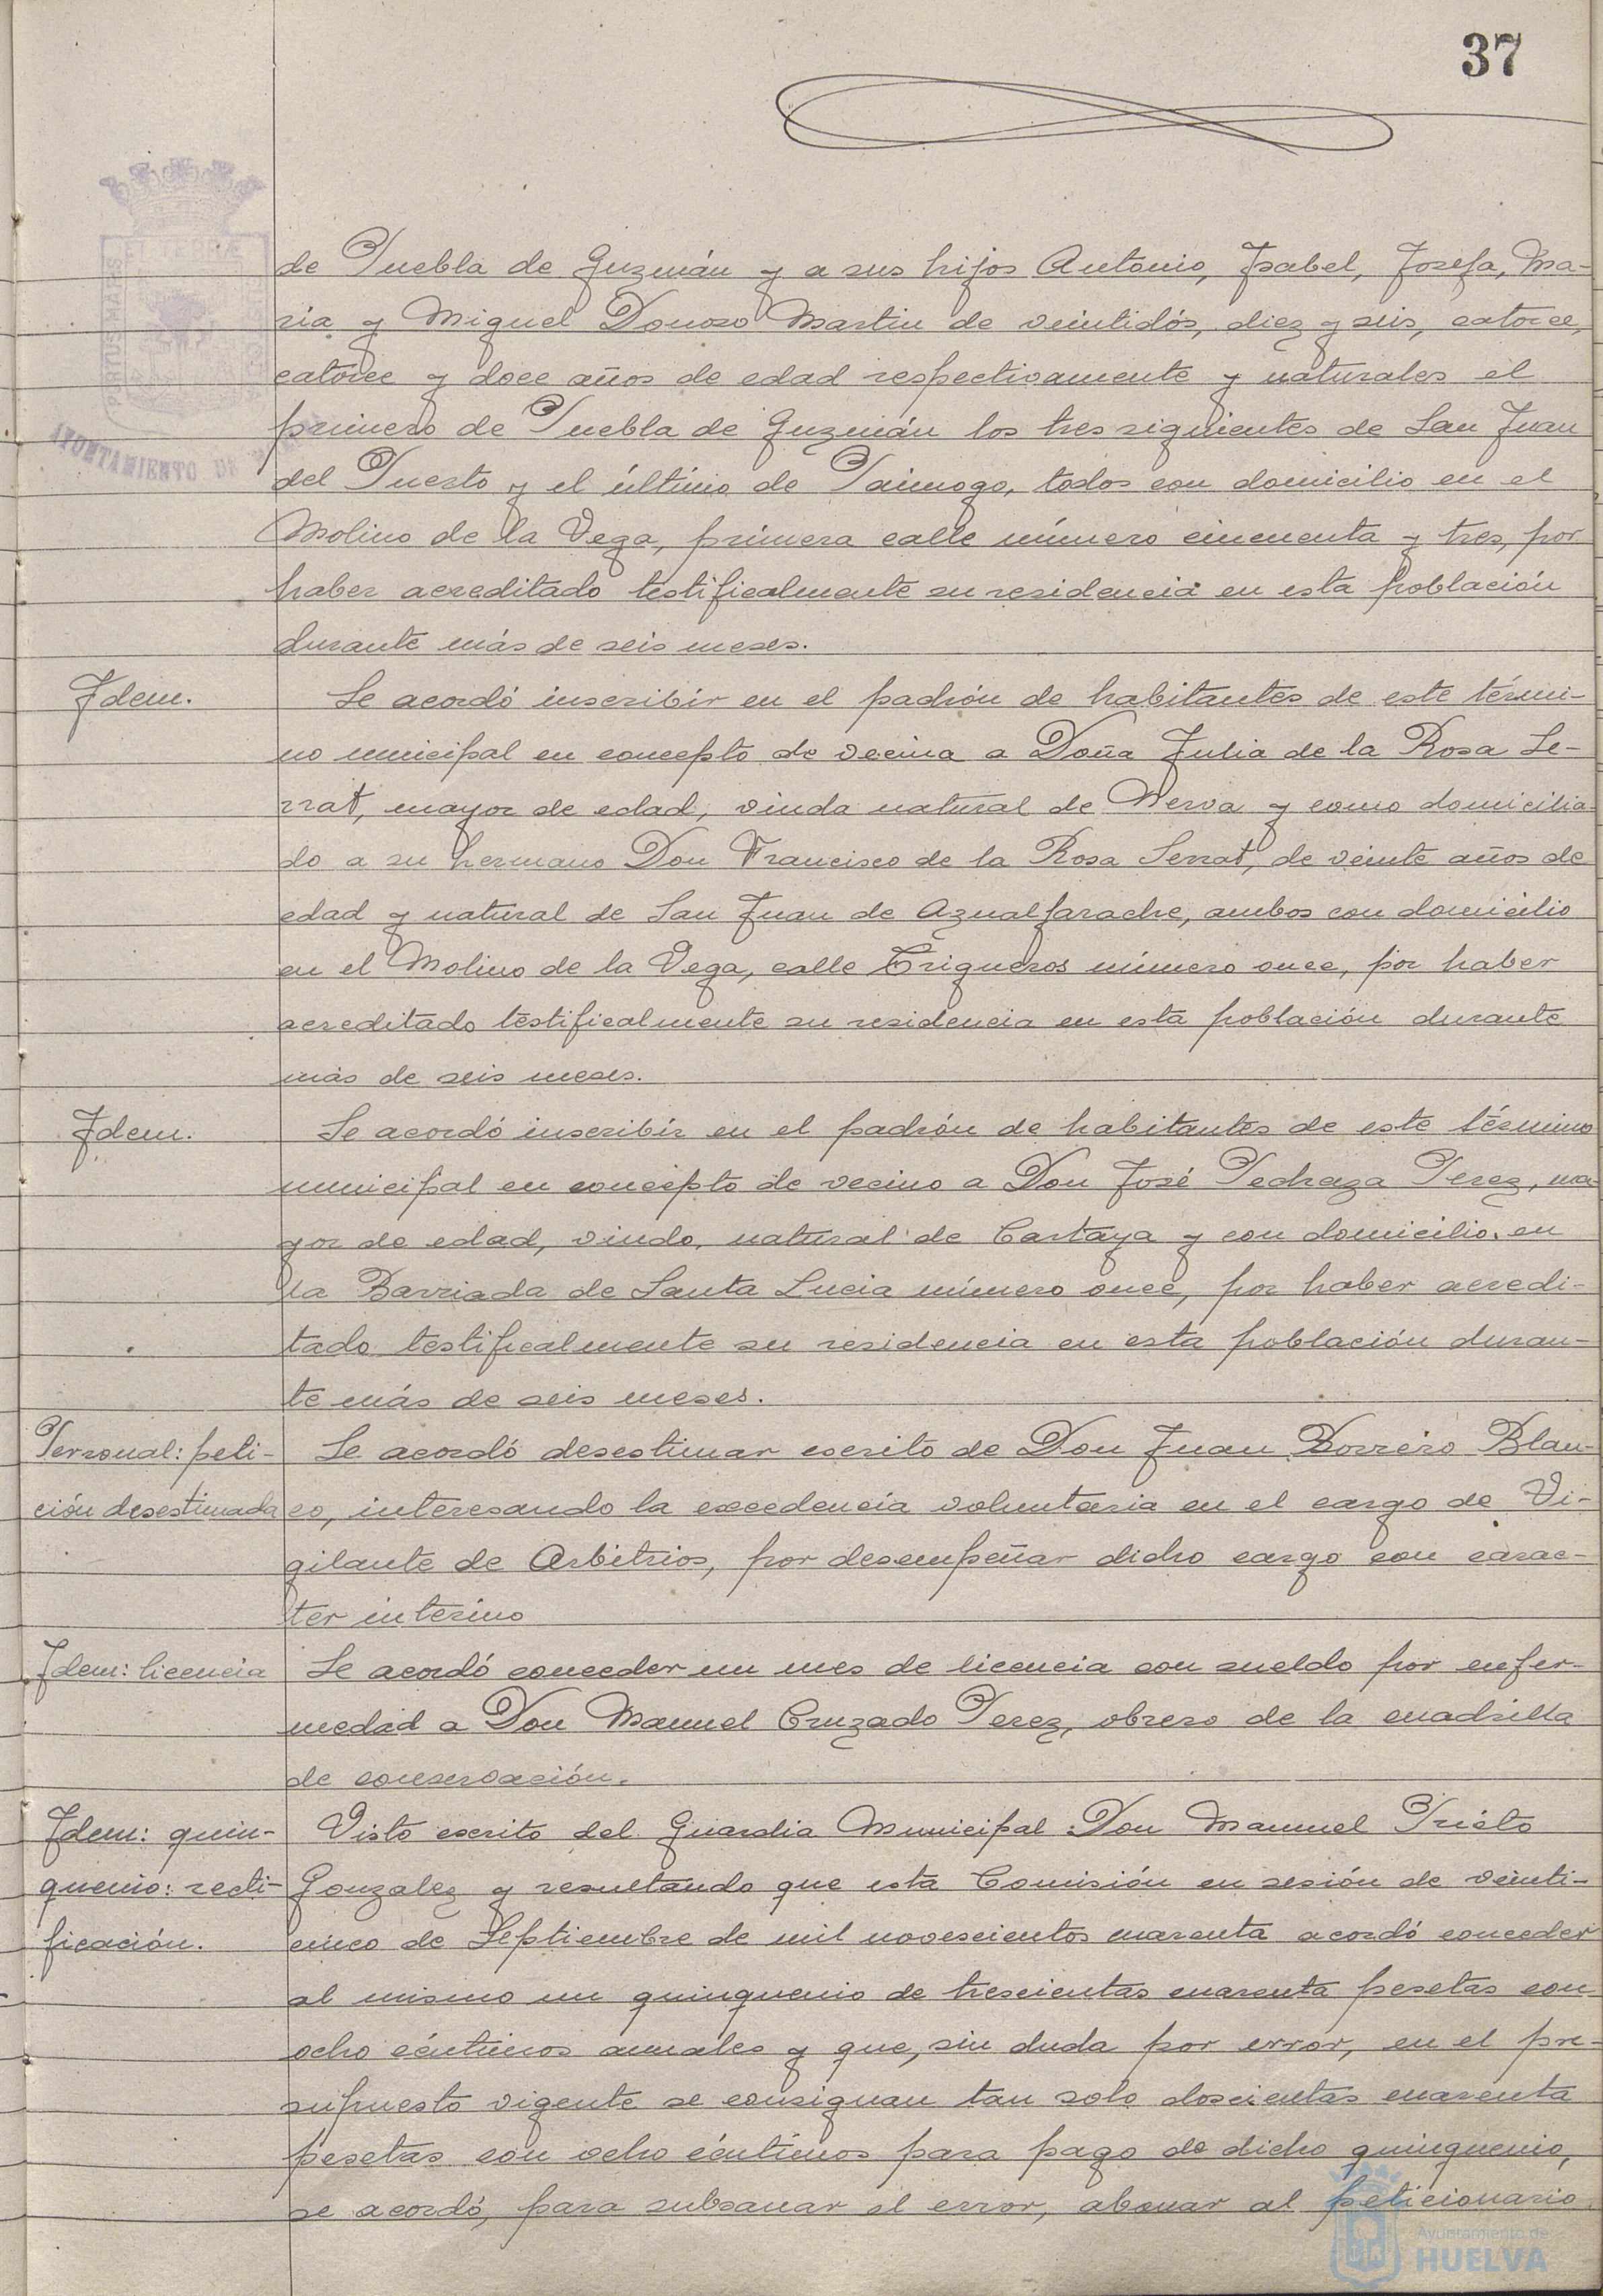 37
PORTUS MARIS ET TERRAE CUSTODIA
AYUNTAMIENTO DE
de Puebla de Guzmán y a sus hijos Antonio, Isabel, Josefa, Ma-
ria y Miguel Donoso Martin de veintidós, diez y seis, catorce,
catorce y doce años de edad respectivamente y naturales el
primero de Puebla de Guzmán los tres siguientes de San Juan
del Puerto y el último de Paimogo, todos con domicilio en el
Molino de la Vega, primera calle número cincuenta y tres, por
haber acreditado testificalmente su residencia en esta población
durante más de seis meses.
Idem.
Se acordó inscribir en el padrón de habitantes de este térmi-
no municipal en concepto de vecina a Doña Julia de la Rosa Se-
rrat, mayor de edad, viuda natural de Nerva y como domicilia-
do a su hermano Don Francisco de la Rosa Serrat, de veinte años de
edad y natural de San Juan de Aznalfarache, ambos con domicilio
en el Molino de la Vega, calle Trigueros número once, por haber
acreditado testificalmente su residencia en esta población durante
más de seis meses.
Idem.
Se acordó inscribir en el padrón de habitantes de este término
municipal en concepto de vecino a Don José Pedraza Perez, ma-
yor de edad, viudo, natural de Cartaya y con domicilio en
la Barriada de Santa Lucia número once, por haber acredi-
tado testificalmente su residencia en esta población duran-
te más de seis meses.
Personal: peti-
ción desestimada
Se acordó desestimar escrito de Don Juan Borrero Blan-
co, interesando la excedencia voluntaria en el cargo de Vi-
gilante de Arbitrios, por desempeñar dicho cargo con carac-
ter interino
Idem: licencia
Se acordó conceder un mes de licencia con sueldo por enfer-
medad a Don Manuel Cruzado Perez, obrero de la cuadrilla
de conservación.
Idem: quin-
quenio: recti-
ficación.
Visto escrito del Guardia Municipal Don Manuel Prieto
Gonzalez y resultando que esta Comisión en sesión de veinti-
cinco de Septiembre de mil novescientos cuarenta acordó conceder
al mismo un quinquenio de trescientas cuarenta pesetas con
ocho céntimos anuales y que, sin duda por error, en el pre-
supuesto vigente se consignan tan solo doscientas cuarenta
pesetas con ocho céntimos para pago de dicho quinquenio,
se acordó, para subsanar el error, abonar al peticionario
Ayuntamiento de
HUELVA